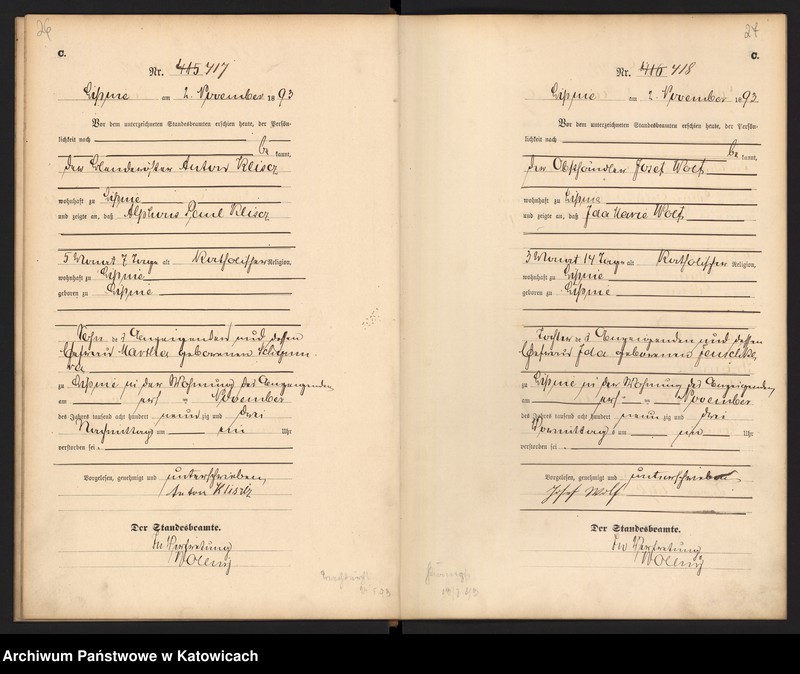 26
C.
Nr. 415 417
Lipine am 2. November 1893
Vor dem unterzeichneten Standesbeamten erschien heute, der Persön-
lichkeit nach
be kannt,
der Anton Kliscz
wohnhaft zu Lipine
und zeigte an, daß Alphons Paul Kliscz
5 Monat 7 Tage alt Katholischer Religion,
wohnhaft zu Lipine
geboren zu Lipine
Sohn des Anzeigenden und dessen
Ehefrau Martha geborenen
zu Lipine in der Wohnung des Anzeigenden,
am ersten November
des Jahres tausend acht hundert neun zig und drei
Nachmittag um ein Uhr
verstorben sei.
Vorgelesen, genehmigt und unterschrieben,
Anton Kliscz
Der Standesbeamte.
In Vertretung
Wolny
27
C.
Nr. 416 418
Lipine am 2. November 1893
Vor dem unterzeichneten Standesbeamten erschien heute, der Persön-
lichkeit nach
be kannt,
der Obsthändler Josef Wolf
wohnhaft zu Lipine
und zeigte an, daß Ida Marie Wolf
3 Monat 14 Tage alt Katholischer Religion,
wohnhaft zu Lipine
geboren zu Lipine
Tochter des Anzeigenden und dessen
Ehefrau Ida geborenen
zu Lipine in der Wohnung des Anzeigenden,
am ersten November
des Jahres tausend acht hundert neun zig und drei
Vormittag um Uhr
verstorben sei
Vorgelesen, genehmigt und unterschrieben
Josef Wolf
Der Standesbeamte.
In Vertretung
Wolny
Archiwum Państwowe w Katowicach